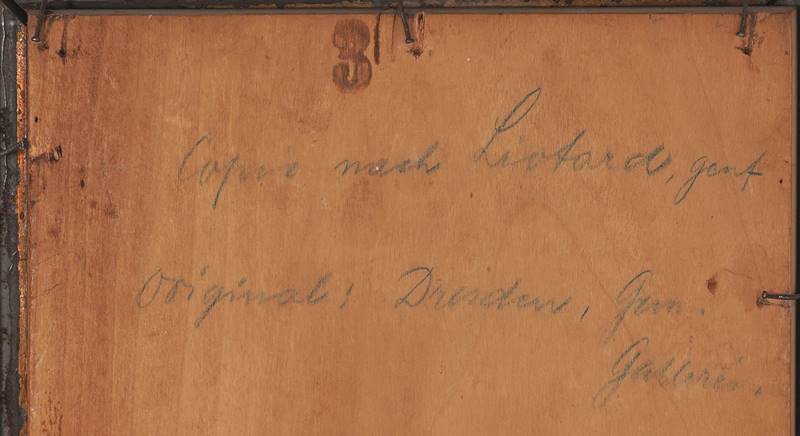 3
Copie nach Liotard, genf
Original: Dresden, Gem.
Gallerie.